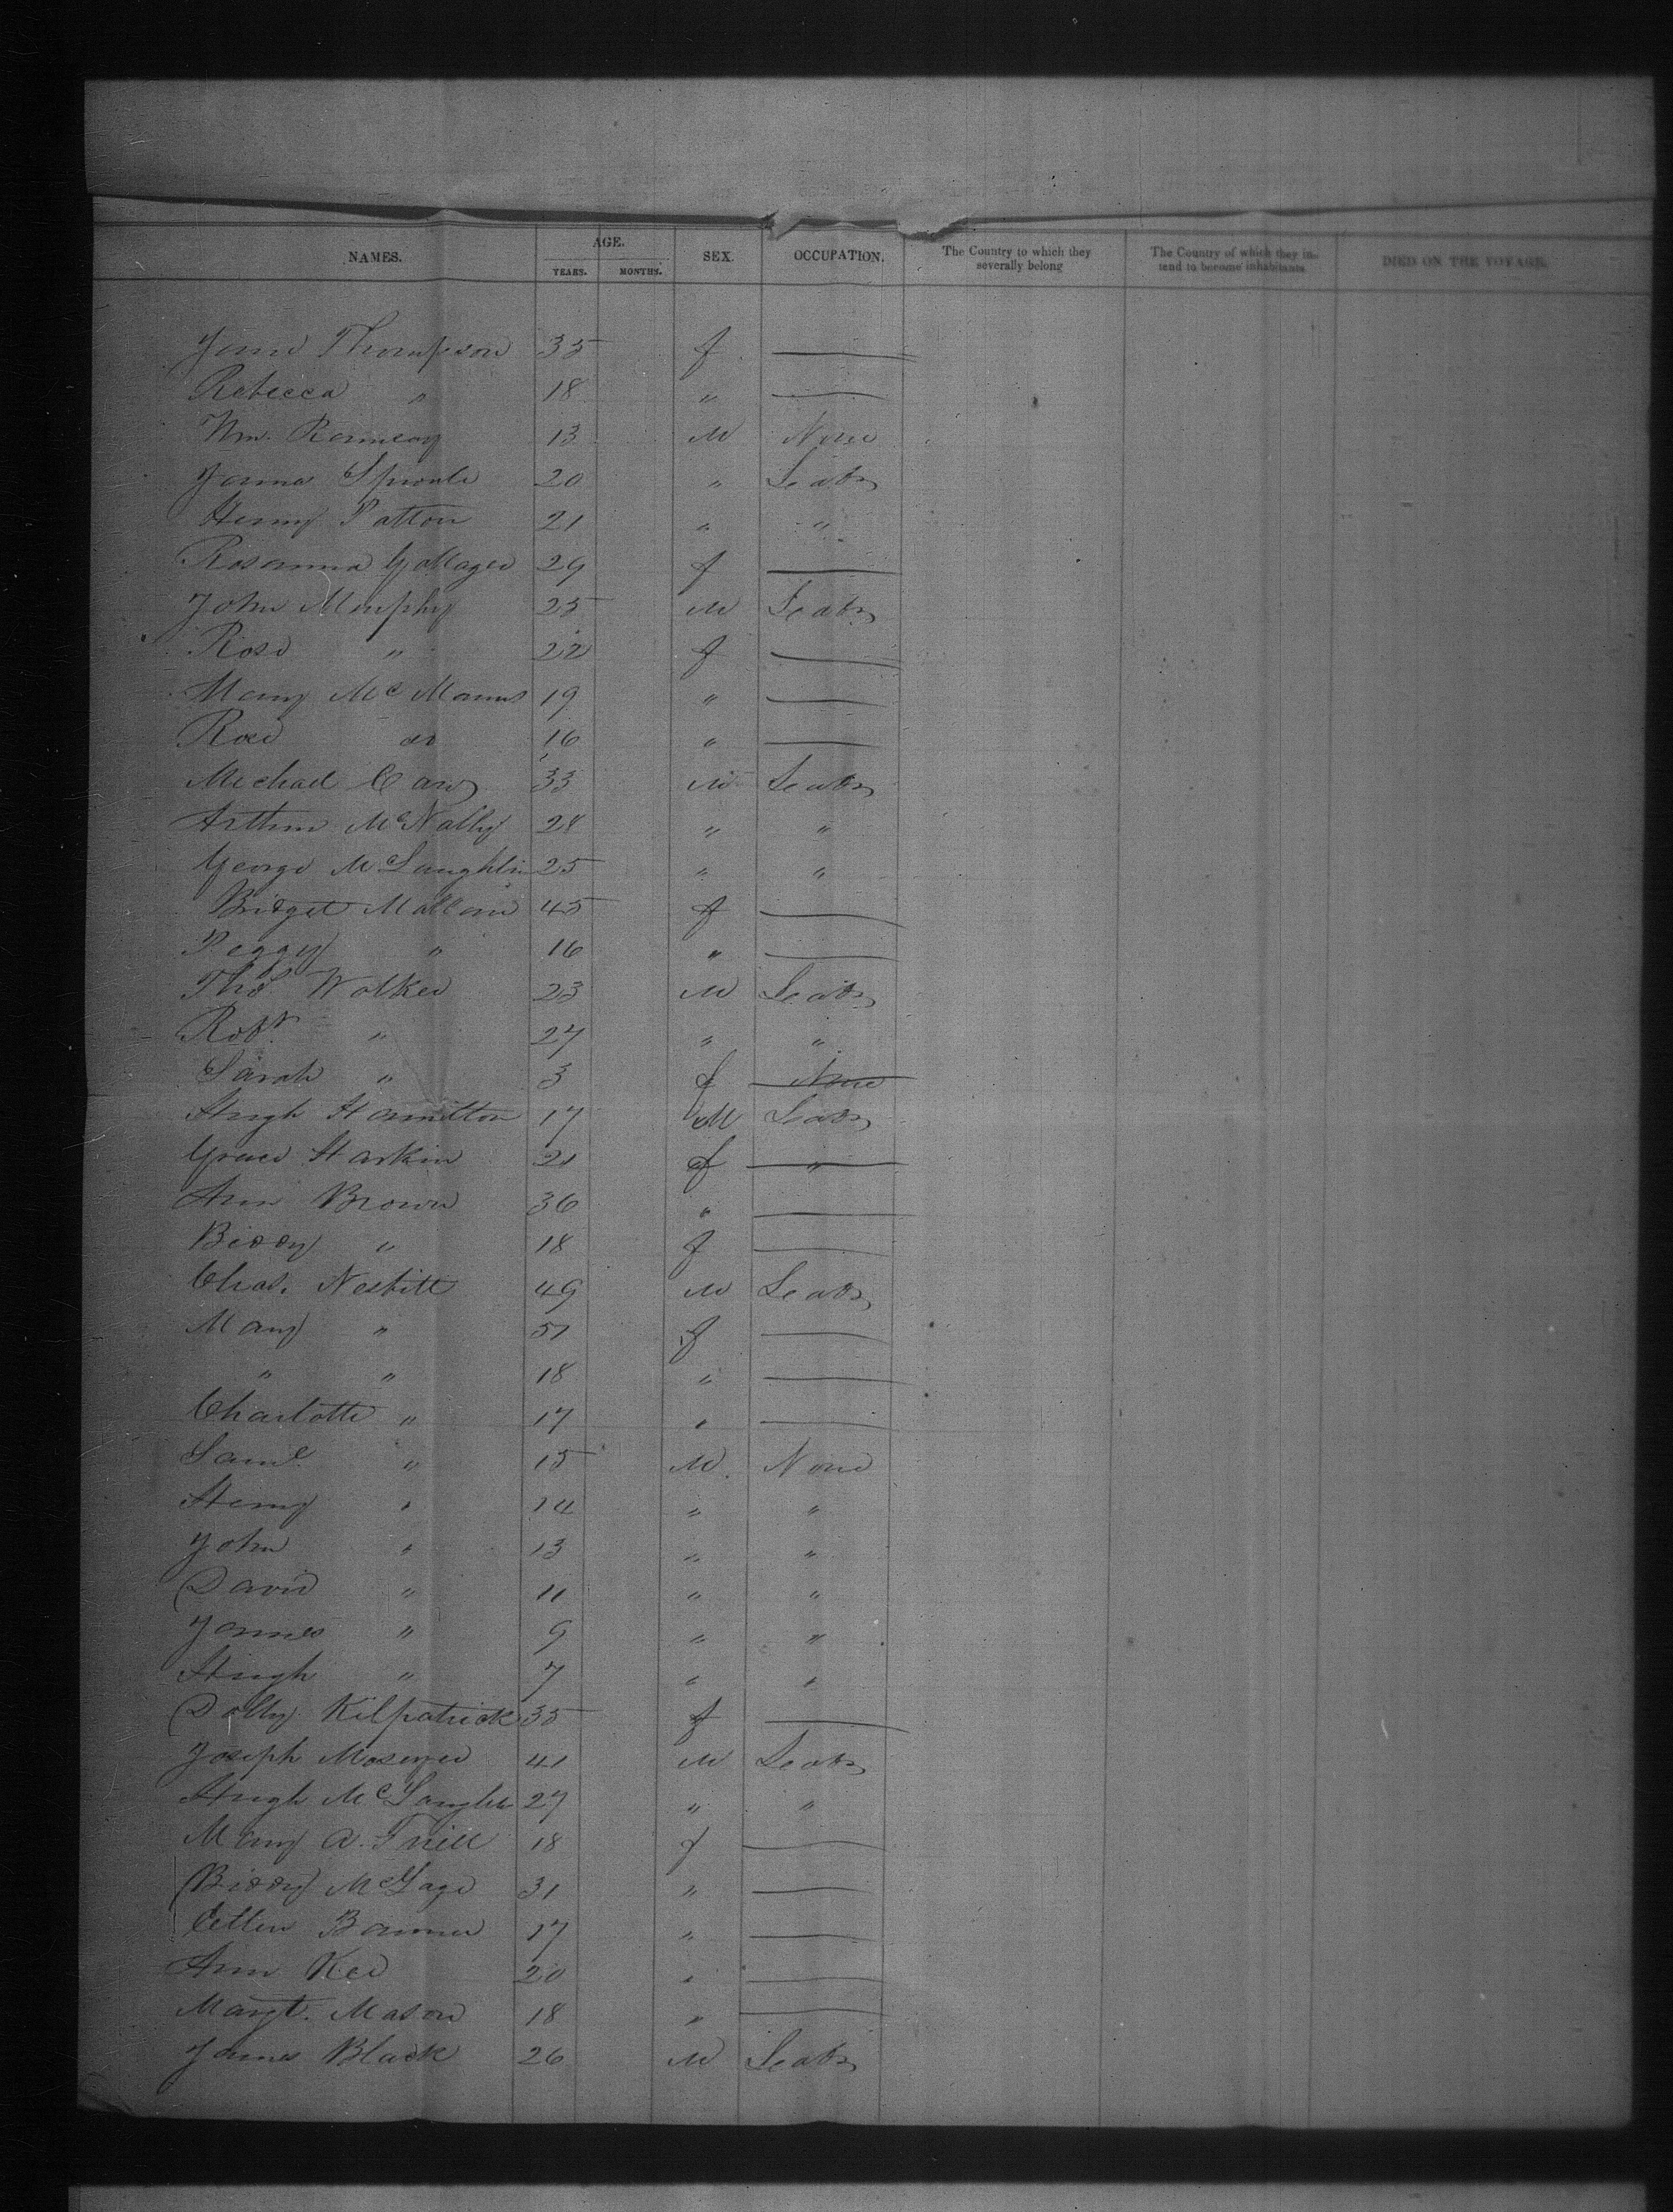 NAMES. AGE. YEARS. MONTHS. SEX. OCCUPATION. The Country to which they severally belong The Country of which they intend to become inhabitants DIED ON THE VOYAGE.
Jane Thompson 35 f
Rebecca " 18 "
Wm. Ramsay 13 M None
James Sproule 20 " Labr
Henry Patton 21 " "
Rosanna Gallager 29 f
John Murphy 25 M Labr
Rose " 22 f
Mary McManus 19 "
Rose do 16 "
Michael 33 M Labr
Arthur McNally 28 " "
George McLaughlin 25 " "
Bridget Mallon 45 f
Peggy " 16 "
Thos. Walker 23 M Labr
Robt. " 27 " "
Sarah " 3 f None
Hugh Hamilton 17 M Labr
Grace Harkin 21 f "
Ann Brown 36 "
Biddy " 18 f
Chas. Nesbitt 49 M Labr
Mary " 51 f
" " 18 "
Charlotte " 17 "
Saml. " 15 M. None
Henry " 14 " "
John " 13 " "
David " 11 " "
James " 9 " "
Hugh " 7 " "
Dolly Kilpatrick 35 f
Joseph 41 M Labr
Hugh McLaughlin 27 " "
Mary A. 18 f
Biddy 31 "
Ellen 17 "
Ann Kee 20 "
Margt. Mason 18 "
James Black 26 M Labr